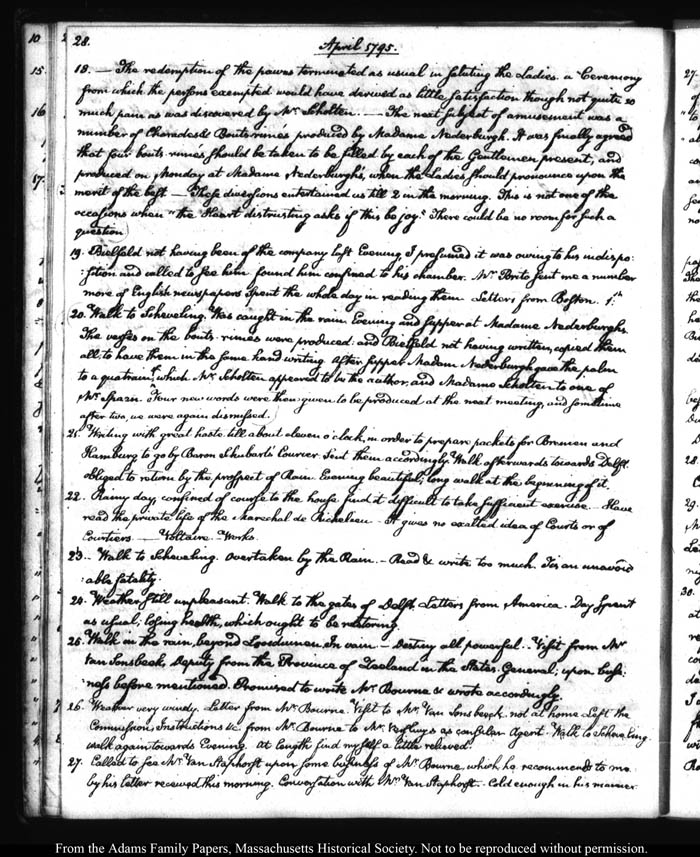 28.
April 1795.
18. — The redemption of the pawns terminated as usual in saluting the Ladies. a Ceremony
from which the persons exempted would have derived as little satisfaction though not quite so
much pain as was discovered by Mr. Scholten. — The next subject of amusement was a
number of Charades & Bouts-rimés produced by Madame Nederburgh. It was finally agreed
that four bouts-rimés should be taken to be filled by each of the Gentlemen present, and
produced on Monday at Madame Nederburgh's, when the Ladies should pronounce upon the
merit of the best — These diversions entertained us till 2 in the morning. This is not one of the
occasions when "the Heart distrusting asks if this be joy." There could be no room for such a
question.
19. Bielfeld not having been of the company last Evening, I presumed it was owing to his indispo-
:sition and called to see him found him confined to his chamber. Mr. Brito sent me a number
more of English newspapers Spent the whole day in reading them Letters from Boston.
20. Walk to Scheveling. Was caught in the rain. Evening and supper at Madame Nederburgh's.
The verses on the bouts-rimés were produced: and Bielfeld not having written, copied them
all, to have them in the same hand writing. After supper Madam Nederburgh gave the palm
to a quatrain, which Mr. Scholten appeared to be the author, and Madame Scholten to one of
Mr. Spaen. Four new words were then given to be produced at the next meeting, and sometime
after two, we were again dismissed.
21. Writing with great haste till about eleven o'clock, in order to prepare packets for Bremen and
Hamburg to go by Baron Schubart's Courier. Sent them accordingly. Walk afterwards towards Delft.
obliged to return by the prospect of Rain. Evening beautiful; long walk at the beginning of it.
22. Rainy day, confined of course to the house find it difficult to take sufficient exercise. Have
read the private life of the Marechal de Richelieu. It gives no exalted idea of Courts or of
Courtiers. — Voltaire. Works.
23. Walk to Scheveling. Overtaken by the Rain. Read & write too much. Tis an unavoid
:able fatality.
24. Weather still unpleasant. Walk to the gates of Delft. Letters from America. Day spent
as usual; losing health, which ought to be restoring.
25. Walk in the rain, beyond Loosduinen. In vain — Destiny all powerful. Visit from Mr.
Van Sonsbeek, Deputy from the Province of Zeeland in the States-General; upon busi-
:ness before mentioned. Promised to write Mr. Bourne & wrote accordingly.
26. Weather very windy. Letter from Mr. Bourne. Visit to Mr. Van Sonsbeek, not at home Left the
Commission, Instructions &c. from Mr. Bourne to Mr. as consular Agent. Walk to Scheveling
walk again towards Evening. At length find myself a little relieved.
27. Called to see Mr. Van Staphorst upon some business of Mr. Bourne, which he recommends to me
by his letter received this morning. Conversation with Mr. Van Staphorst. Cold enough in his manner
From the Adams Family Papers, Massachusetts Historical Society. Not to be reproduced without permission.